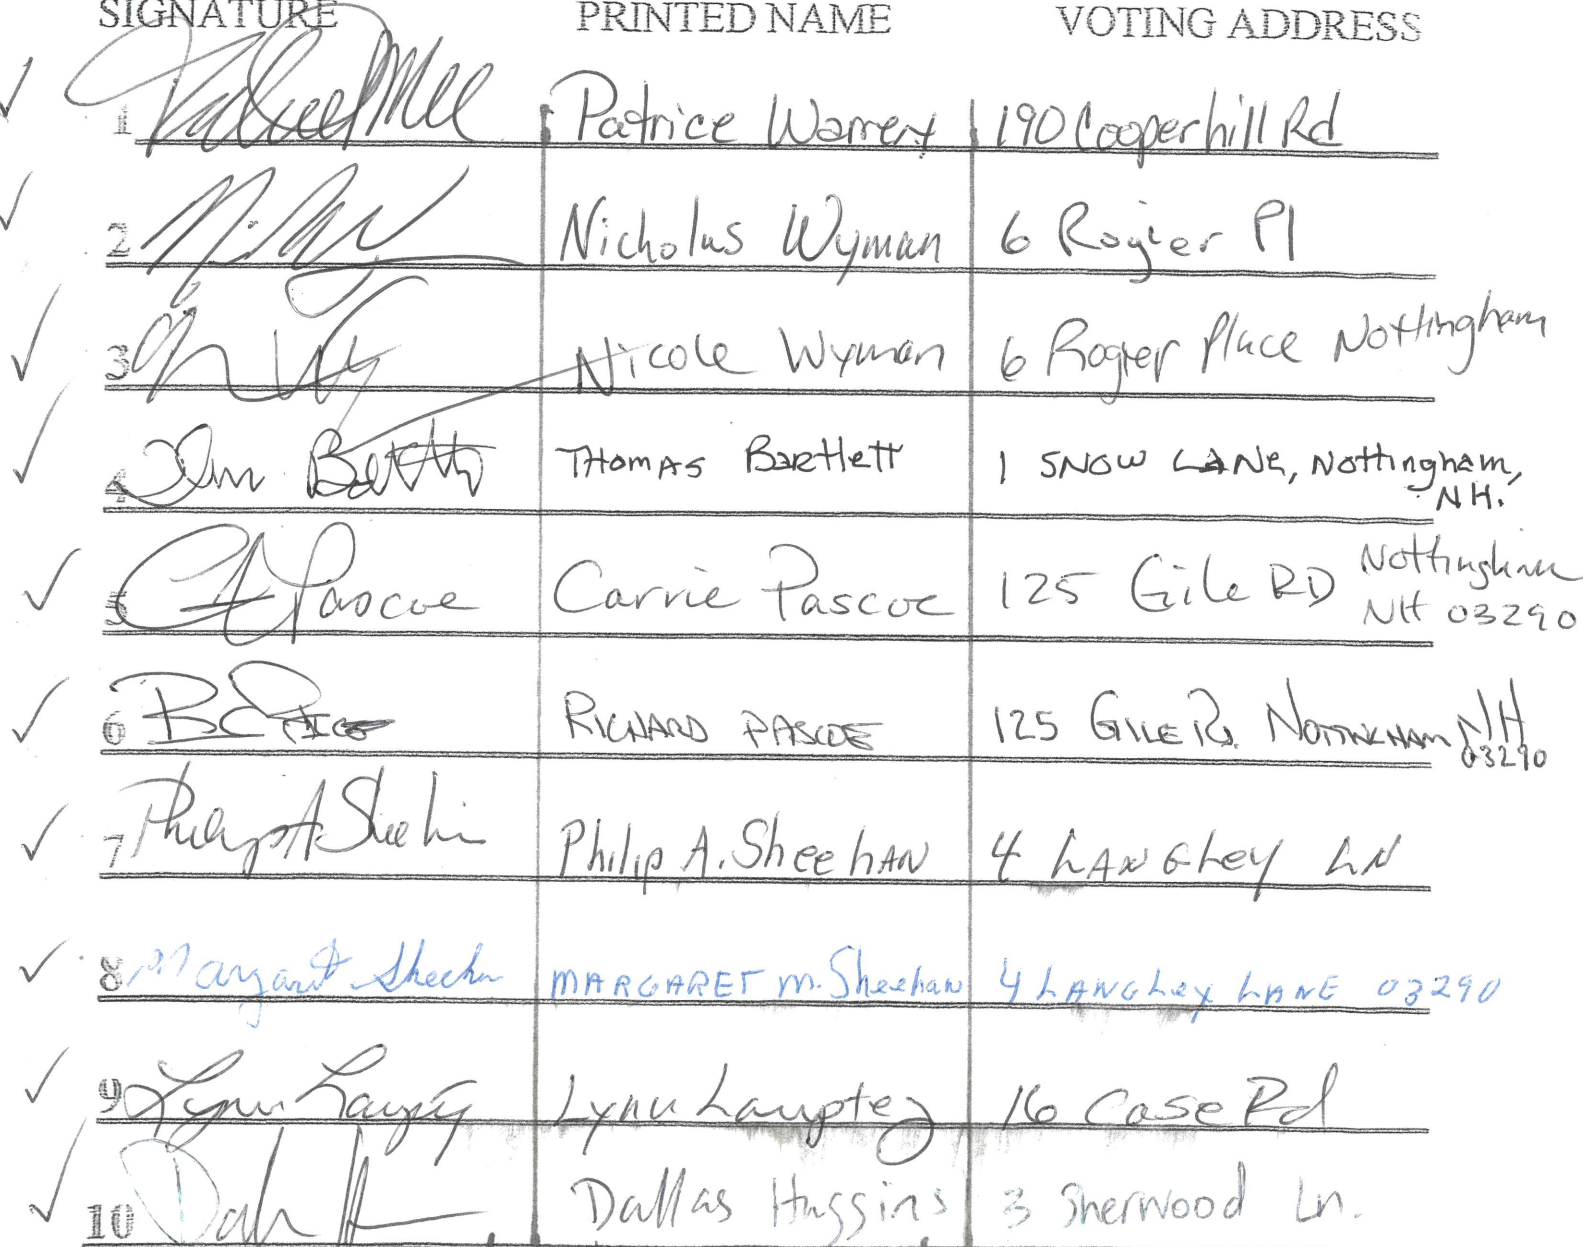 SIGNATURE PRINTED NAME VOTING ADDRESS
1 Patrice Warren 190 Cooperhill Rd
2 Nicholas Wyman 6 Rogier Pl
3 Nicole Wyman 6 Rogier Place Nottingham
4 Tom Bartlett THOMAS Bartlett 1 SNOW LANE, Nottingham,
NH.
5 C A Pascoe Carrie Pascoe 125 Gile RD Nottingham
NH 03290
6 RICHARD PASCOE 125 GILE Rd. NOTTINGHAM NH
03290
7 Philip A. Sheehan Philip A. SheehAN 4 LANGLey LN
8 Margaret Sheehan MARGARET M. Sheehan 4 LANGLey LANE 03290
9 Lynn Lynn 16 Case Rd
10 Dallas Huggins 3 Sherwood Ln.